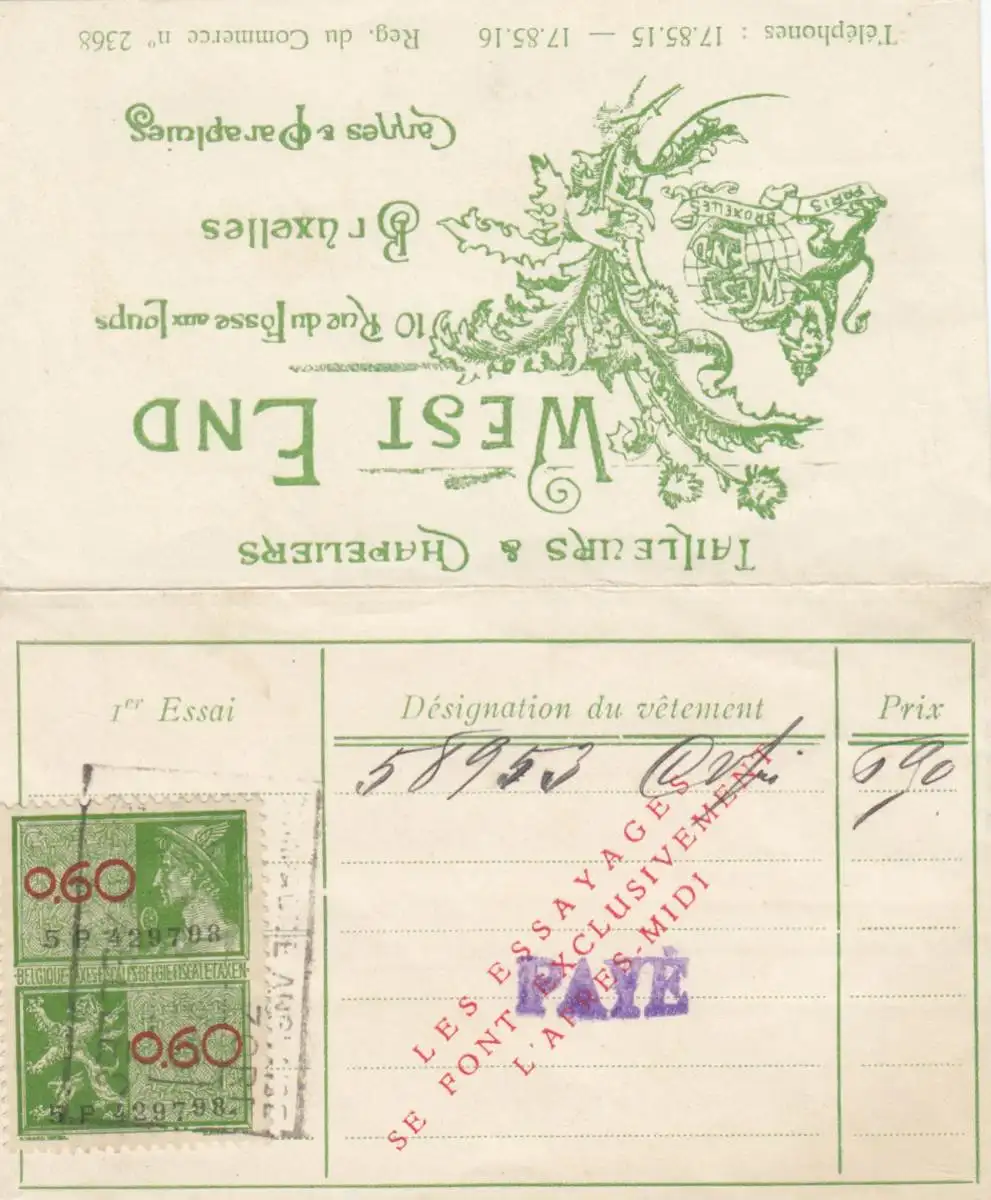 TAILLEURS & CHAPELIERS
WEST END
10 Rue du Fossé aux Loups
Bruxelles
Cannes & Parapluies
WEST
END
PARIS
BRUXELLES
Téléphones : 17.85.15 — 17.85.16 Reg. du Commerce n° 2368
1er Essai Désignation du vêtement Prix
58953 690
LES ESSAYAGES
SE FONT EXCLUSIVEMENT
L'APRES-MIDI
PAYÉ
0.60
5 P 429798
BELGIQUE TAXES FISCALES BELGIE FISCALE TAXEN
0.60
5 P 429798